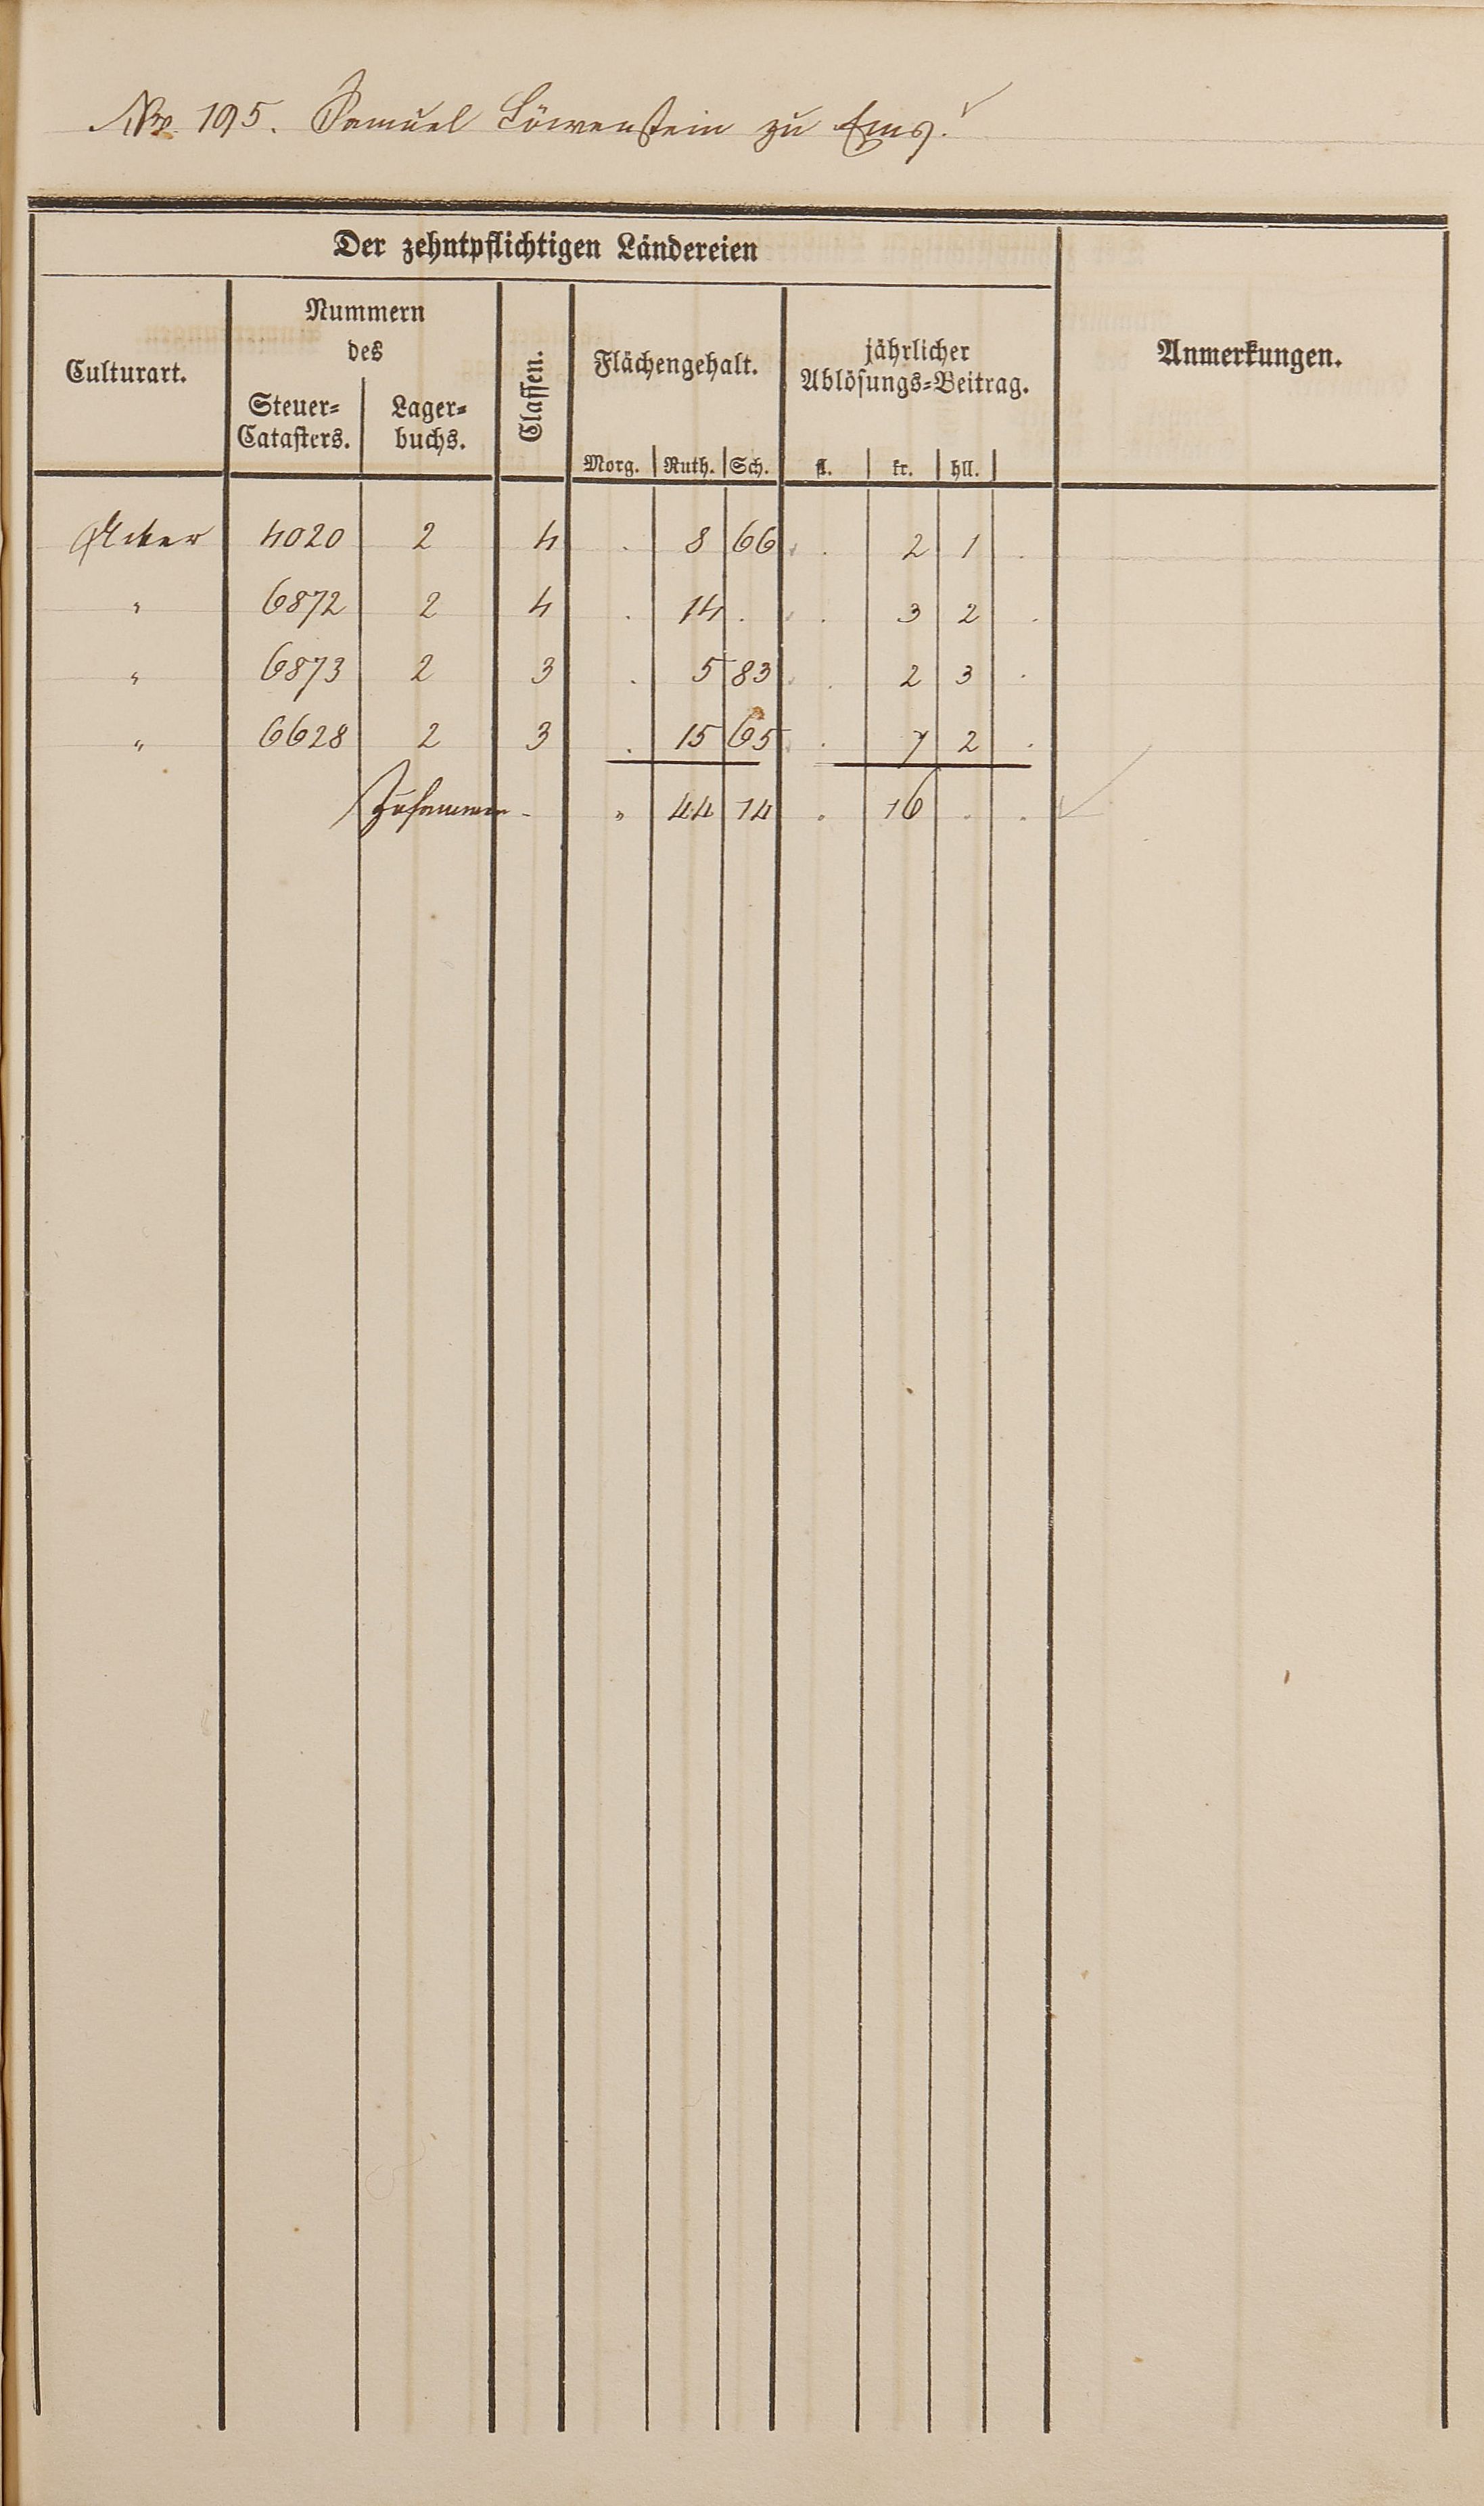 Nro. 195. Samuel Löwenstein zu Ems.
Der zehntpflichtigen Ländereien
Culturart.
Nummern
des
Steuer=
Catasters.
Lager=
buchs.
Classen.
Flächengehalt.
Morg. Ruth. Sch.
jährlicher
Ablösungs=Beitrag.
fl. kr. hll.
Anmerkungen.
Acker 4020 2 4 . 8 66 . 2 1 .
" 6872 2 4 . 14 . . 3 2 .
" 6873 2 3 . 5 83 . 2 3 .
" 6628 2 3 . 15 65 . 7 2 .
Zusammen - " 44 14 . 16 . .